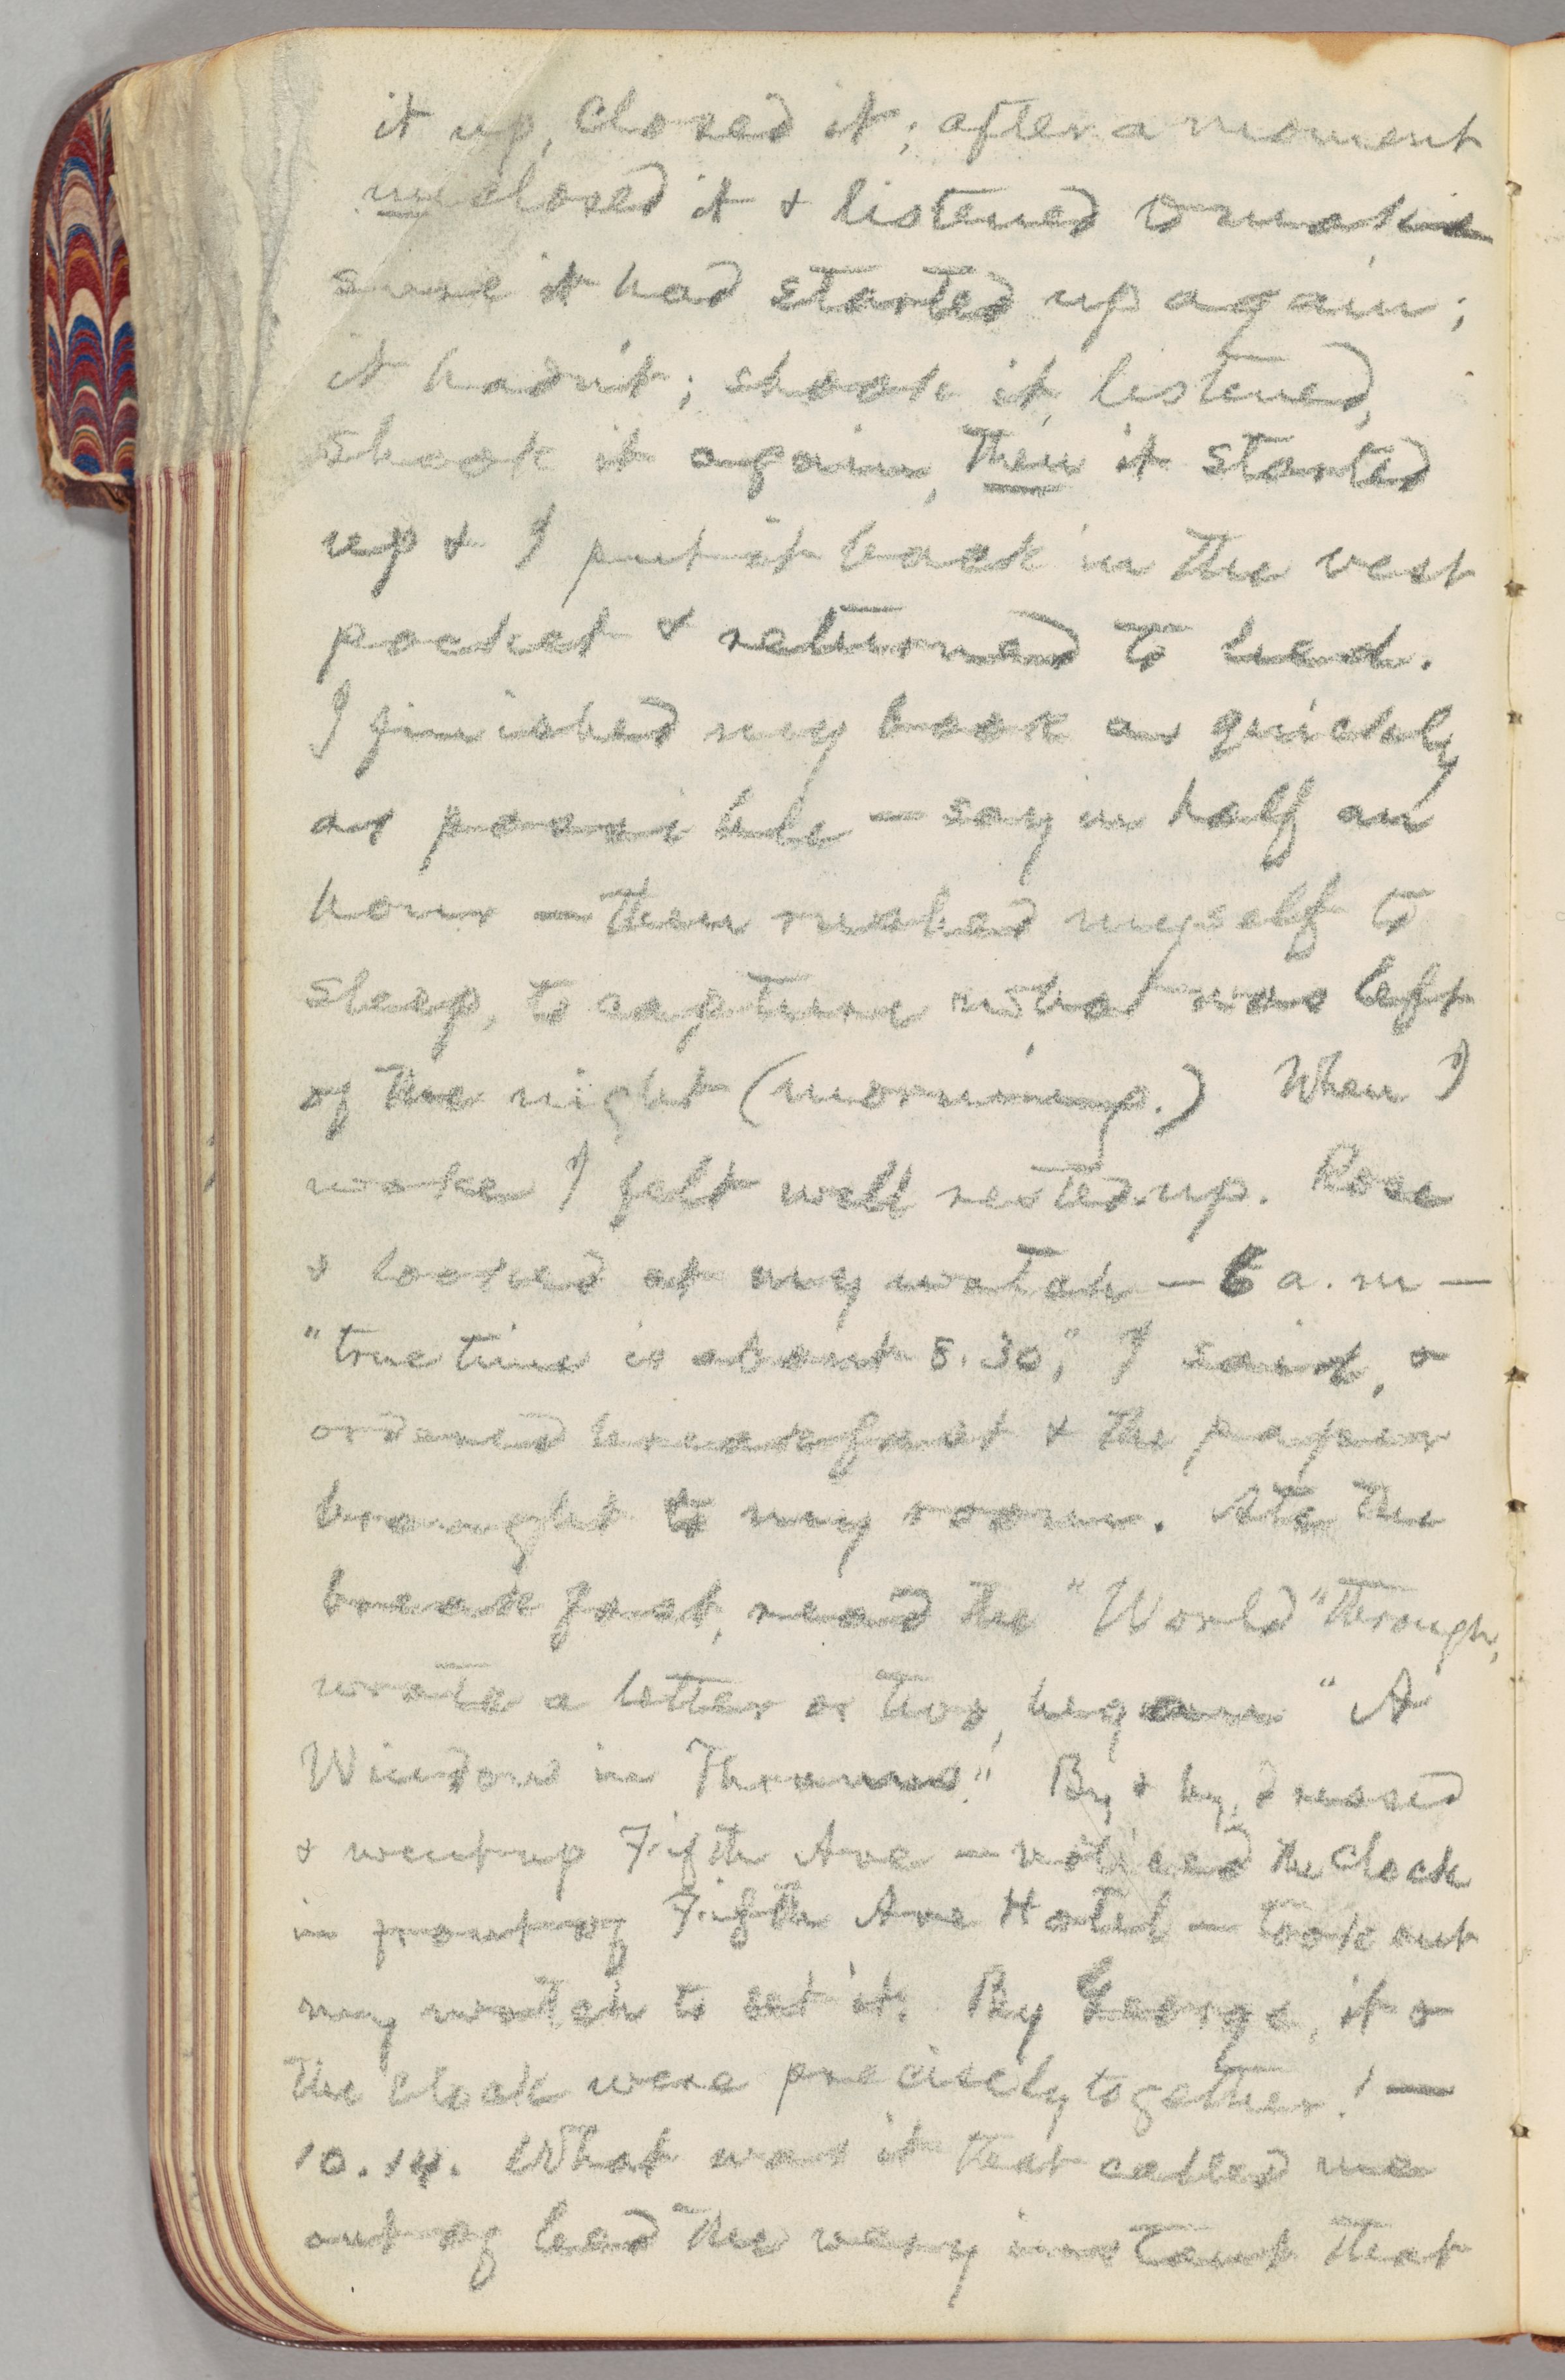 it up, closed it; after a moment
unclosed it & listened to make
sure it had started up again;
it hadn't; shook it, listened,
shook it again, then it started
up & I put it back in the vest
pocket & returned to bed.
I finished my book as quickly
as possible — say in half an
hour — then rushed myself to
sleep, to capture what was left
of the night (morning.) When I
woke I felt well rested-up. Rose
& looked at my watch — 6 a.m —
"true time is about 8.30," I said, &
ordered breakfast & the paper
brought to my room. Ate the
breakfast, read the "World" through,
wrote a letter or two, began "A
Window in Thrums." By & by, dressed
& went up Fifth Ave — noticed the clock
in front of Fifth Ave Hotel — took out
my watch to set it. By George, it &
the clock were precisely together! —
10.14. What was it that called me
out of bed the very instant that